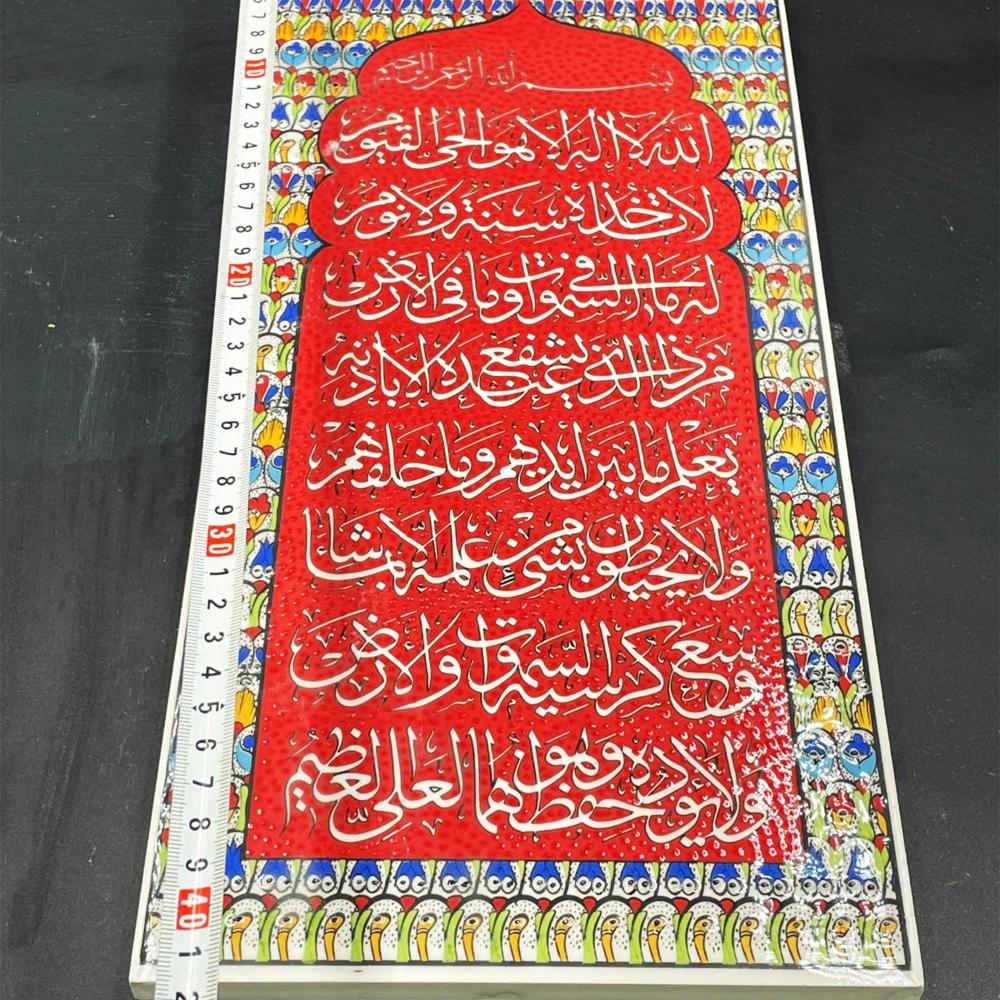 بسم الله الرحمن الرحيم
الله لا اله الا هو الحى القيوم
لا تأخذه سنة ولا نوم
له ما فى السموات وما فى الارض
من ذا الذى يشفع عنده الا باذنه
يعلم ما بين ايديهم وما خلفهم
ولا يحيطون بشئ من علمه الا بما شاء
وسع كرسيه السموات والارض
ولا يؤده حفظهما وهو العلى العظيم
6
7
8
9
10
1
2
3
4
5
6
7
8
9
20
1
2
3
4
5
6
7
8
9
30
1
2
3
4
5
6
7
8
9
40
1
2